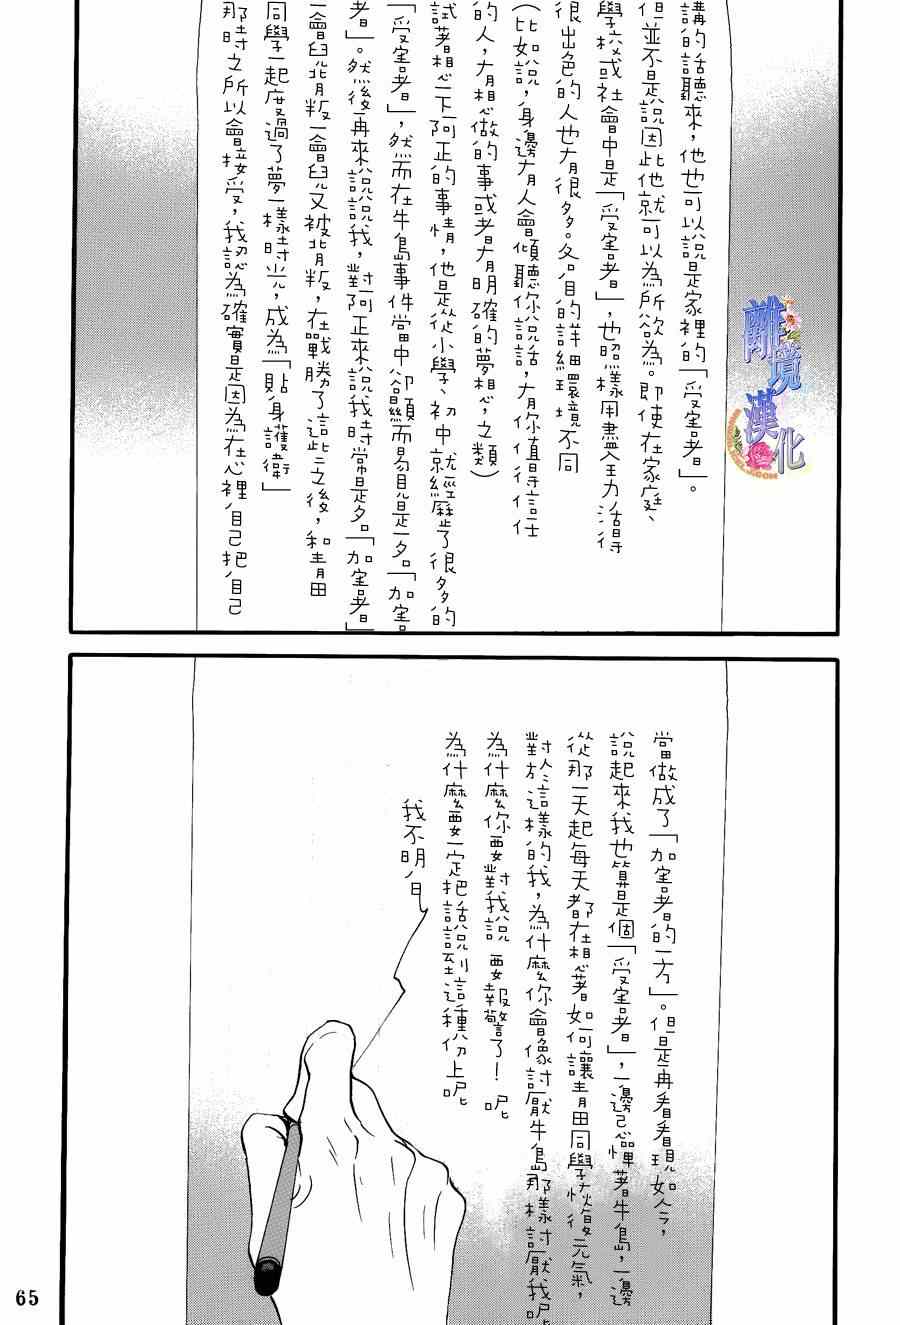 講的話聽來，他也可以說是家裡的「受害者」。
但並不是說因此他就可以為所欲為。即使在家庭、
學校或社會中是「受害者」，也照樣用盡全力活得
很出色的人也有很多。各自的詳細環境不同
（比如說，身邊有人會傾聽你說話，有你值得信任
的人，有想做的事或者有明確的夢想，之類）
試著想一下阿正的事情，他是從小學、初中就經歷了很多的
「受害者」，然而在牛島事件當中卻顯而易見是一名「加害
者」。然後再來說說我，對阿正來說我時常是名「加害者」
一會兒背叛一會兒又被背叛，在戰勝了這些之後，和青田
同學一起度過了夢一樣時光，成為「貼身護衛」
那時之所以會接受，我認為確實是因為在心裡自己把自己
離境漢化
當做成了「加害者的一方」。但是再看看現如今，
說起來我也算是個「受害者」，一邊忌憚著牛島，一邊
從那一天起每天都在想著如何讓青田同學恢復元氣，
對於這樣的我，為什麼你會像討厭牛島那樣討厭我呢
為什麼你要對我說 要報警了！呢
為什麼要一定把話說到這種份上呢
我不明白
65